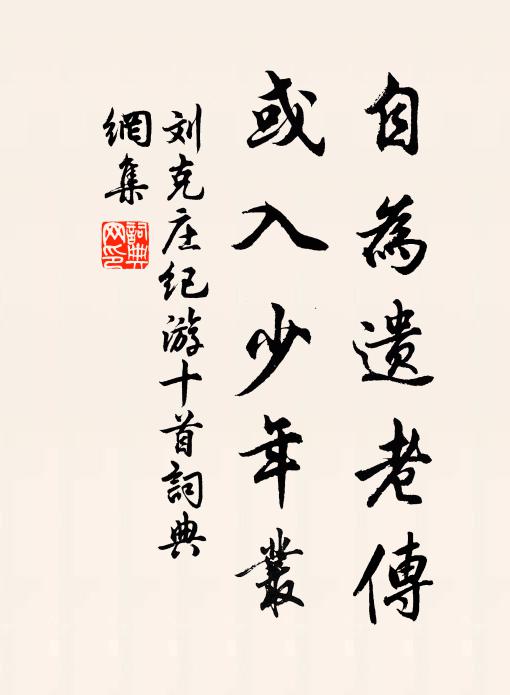 自為遺老傳
或入少年叢
刘克庄纪游十首詞典
網集
詞典
网印